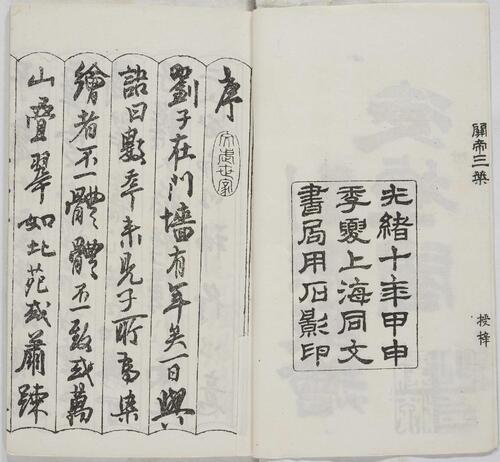 授梓
光緒十年甲申
季夏上海同文
書局用石影印
序
劉子在門墻有年矣一日與
語曰數年來見子所為染
繪者不一體體不一致或萬
山疊翠如北苑或蕭疎